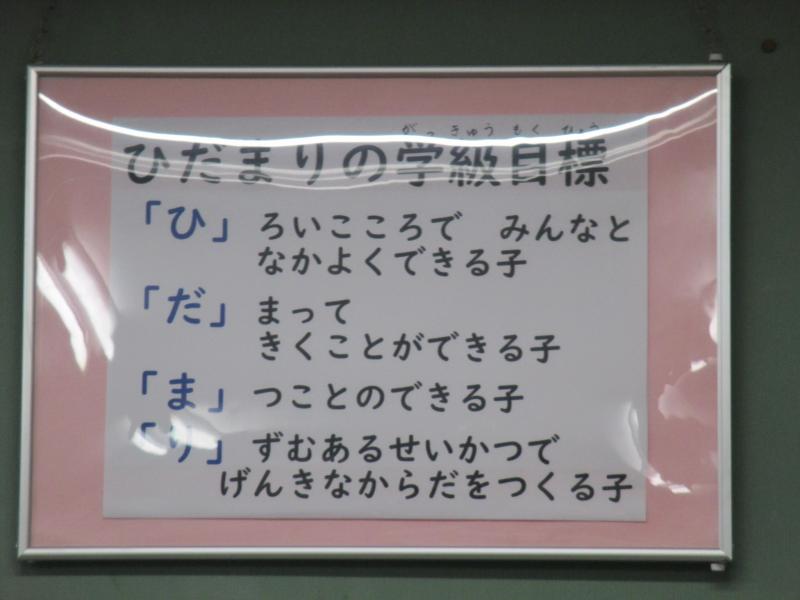 がっきゅうもくひょう
ひだまりの学級目標
「ひ」ろいこころで　みんなと
なかよくできる子
「だ」まって
きくことができる子
「ま」つことのできる子
「り」ずむあるせいかつで
げんきなからだをつくる子